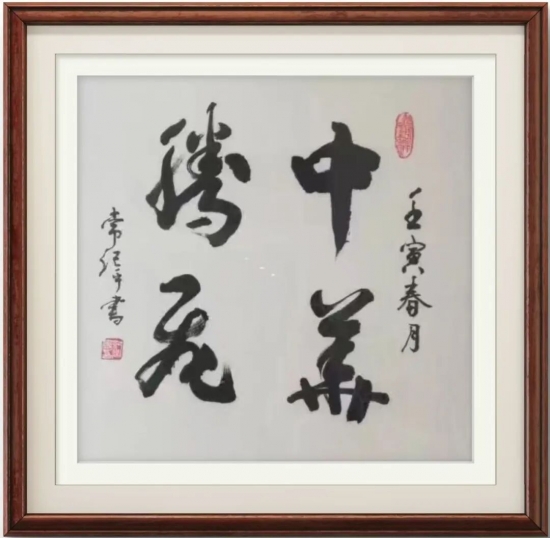 壬寅春月
中華
騰飛
常纪平書